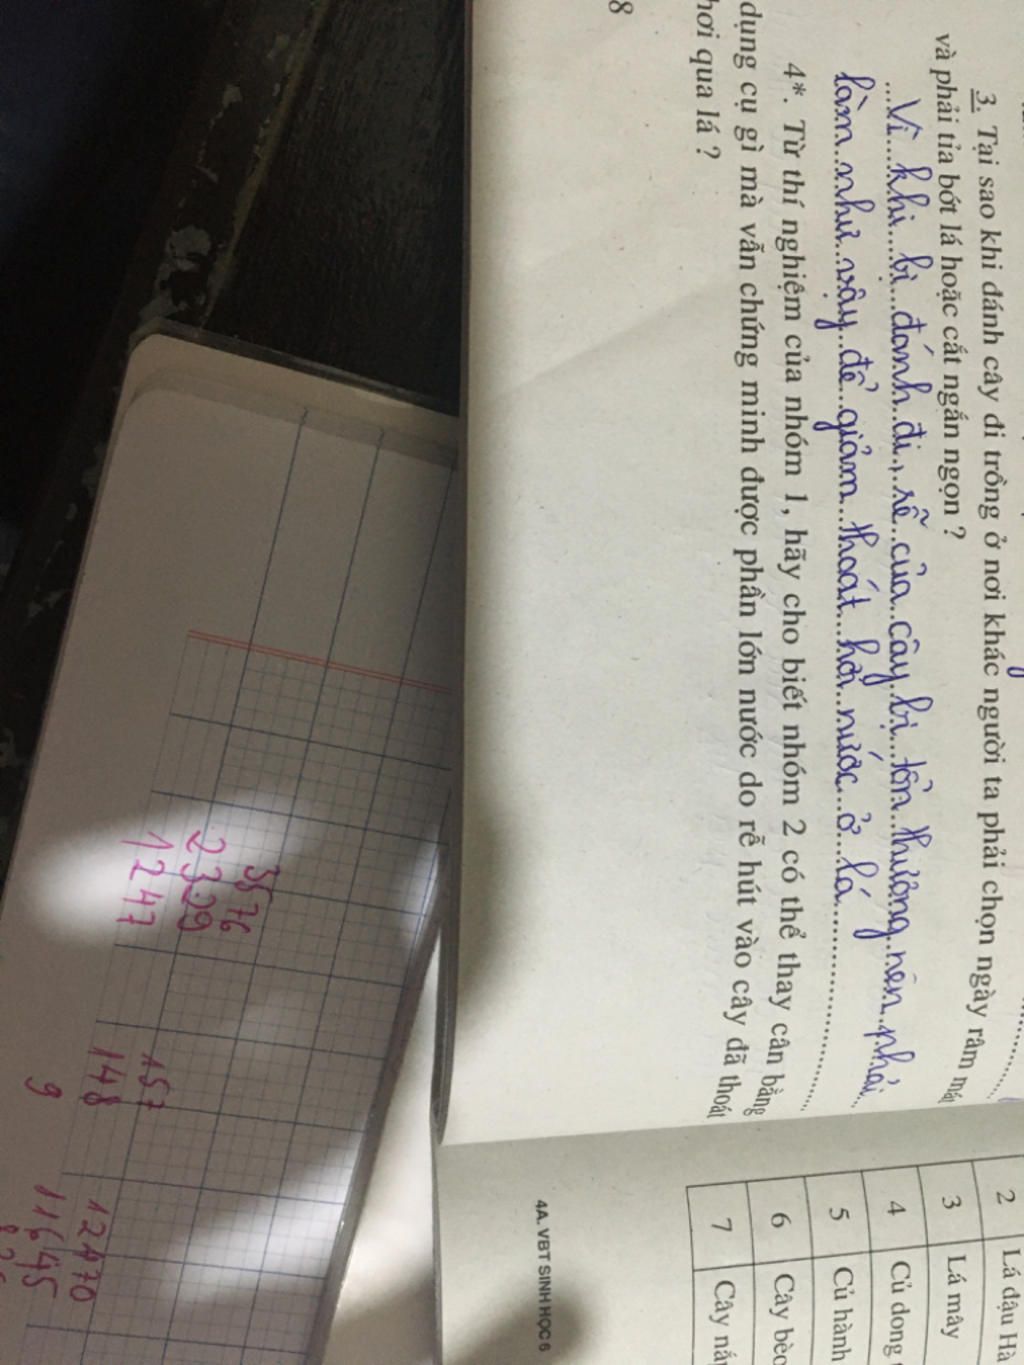 3. Tại sao khi đánh cây đi trồng ở nơi khác người ta phải chọn ngày râm mát
và phải tỉa bớt lá hoặc cắt ngắn ngọn ?
Vì khi bị đánh đi, rễ của cây bị tổn thương nên phải
làm như vậy để giảm thoát hơi nước ở lá
4*. Từ thí nghiệm của nhóm 1, hãy cho biết nhóm 2 có thể thay cân bằng
dụng cụ gì mà vẫn chứng minh được phần lớn nước do rễ hút vào cây đã thoát
hơi qua lá ?
8
2 Lá đậu Hà
3 Lá mây
4 Củ dong
5 Củ hành
6 Cây bèo
7 Cây nắ
4A. VBT SINH HỌC 6
3576
2329
1247
157
148
9
12470
11645